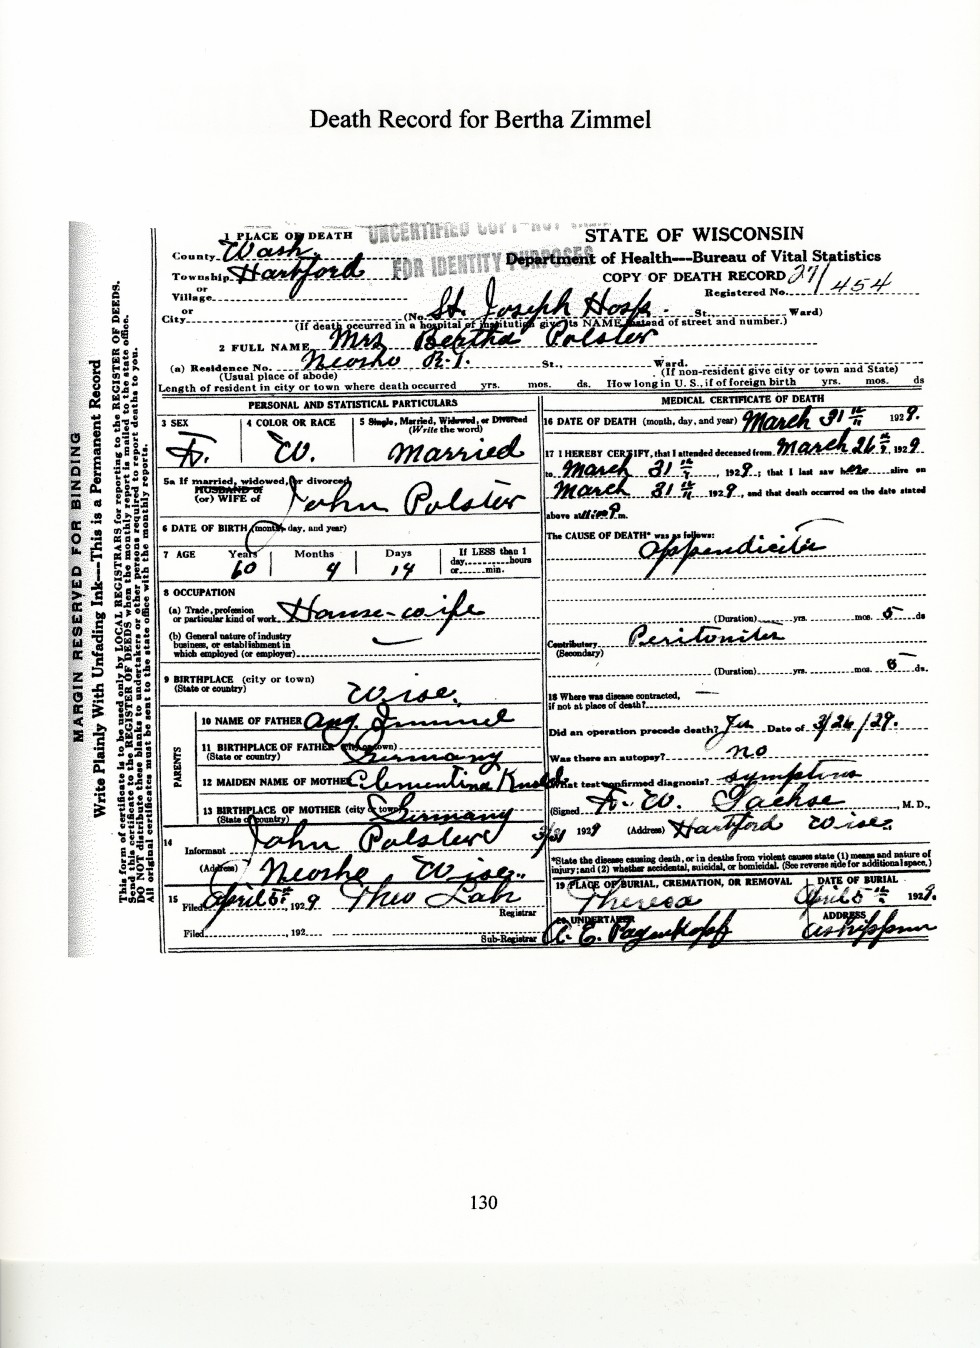 Death Record for Bertha Zimmel
MARGIN RESERVED FOR BINDING
Write Plainly With Unfading Ink---This is a Permanent Record
This form of certificate is to be used only by LOCAL REGISTRARS for reporting to the REGISTER OF DEEDS.
Send this certificate to the REGISTER OF DEEDS when the monthly report is mailed to the state office.
DO NOT distribute these blanks to undertakers or other persons required to report deaths to you.
All original certificates must be sent to the state office with the monthly reports.
UNCERTIFIED COPY-NOT
FOR IDENTITY PURPOSES
STATE OF WISCONSIN
Department of Health---Bureau of Vital Statistics
COPY OF DEATH RECORD
Registered No. 27/454
1 PLACE OF DEATH
County Wash.
Township Hartford
or
Village
or
City (No. St. Joseph Hosp. St. Ward)
(If death occurred in a hospital or institution give its NAME instead of street and number.)
2 FULL NAME Mrs Bertha Polster
(a) Residence No. Neosho R.1. St., Ward.
(Usual place of abode) (If non-resident give city or town and State)
Length of resident in city or town where death occurred yrs. mos. ds. How long in U. S., if of foreign birth yrs. mos. ds
PERSONAL AND STATISTICAL PARTICULARS
3 SEX 4 COLOR OR RACE 5 Single, Married, Widowed, or Divorced
(Write the word)
F. W. Married
5a If married, widowed, or divorced
HUSBAND of
(or) WIFE of John Polster
6 DATE OF BIRTH (month, day, and year)
7 AGE Years Months Days If LESS than 1
day, hours
or min.
60 4 14
8 OCCUPATION
(a) Trade, profession
or particular kind of work House-wife
(b) General nature of industry
business, or establishment in
which employed (or employer)
9 BIRTHPLACE (city or town)
(State or country) Wisc.
PARENTS
10 NAME OF FATHER Aug. Zimmel
11 BIRTHPLACE OF FATHER (city or town)
(State or country) Germany
12 MAIDEN NAME OF MOTHER Clementina
13 BIRTHPLACE OF MOTHER (city or town)
(State or country) Germany
14
Informant John Polster
(Address) Neosho Wisc.
15
Filed April 5th, 1929 Theo Lah
Registrar
Filed , 192
Sub-Registrar
MEDICAL CERTIFICATE OF DEATH
16 DATE OF DEATH (month, day, and year) March 31 1929.
17 I HEREBY CERTIFY, that I attended deceased from March 26 1929
to March 31 1929; that I last saw here alive on
March 31 1929, and that death occurred on the date stated
above at m.
The CAUSE OF DEATH* was as follows:
appendicitis
(Duration) yrs. mos. 5 ds
Contributory Peritonitis
(Secondary)
(Duration) yrs. mos. 5 ds.
18 Where was disease contracted,
if not at place of death?
Did an operation precede death? Yes Date of 3/26/29.
Was there an autopsy? no
What test confirmed diagnosis? symptoms
(Signed F. W. Sachse, M. D.,
3/31 1929 (Address) Hartford Wisc.
*State the disease causing death, or in deaths from violent causes state (1) means and nature of
injury; and (2) whether accidental, suicidal, or homicidal. (See reverse side for additional space.)
19 PLACE OF BURIAL, CREMATION, OR REMOVAL DATE OF BURIAL
Theresa April 5th 1929.
20 UNDERTAKER ADDRESS
A. E. Pagenkopf Ashippun
130